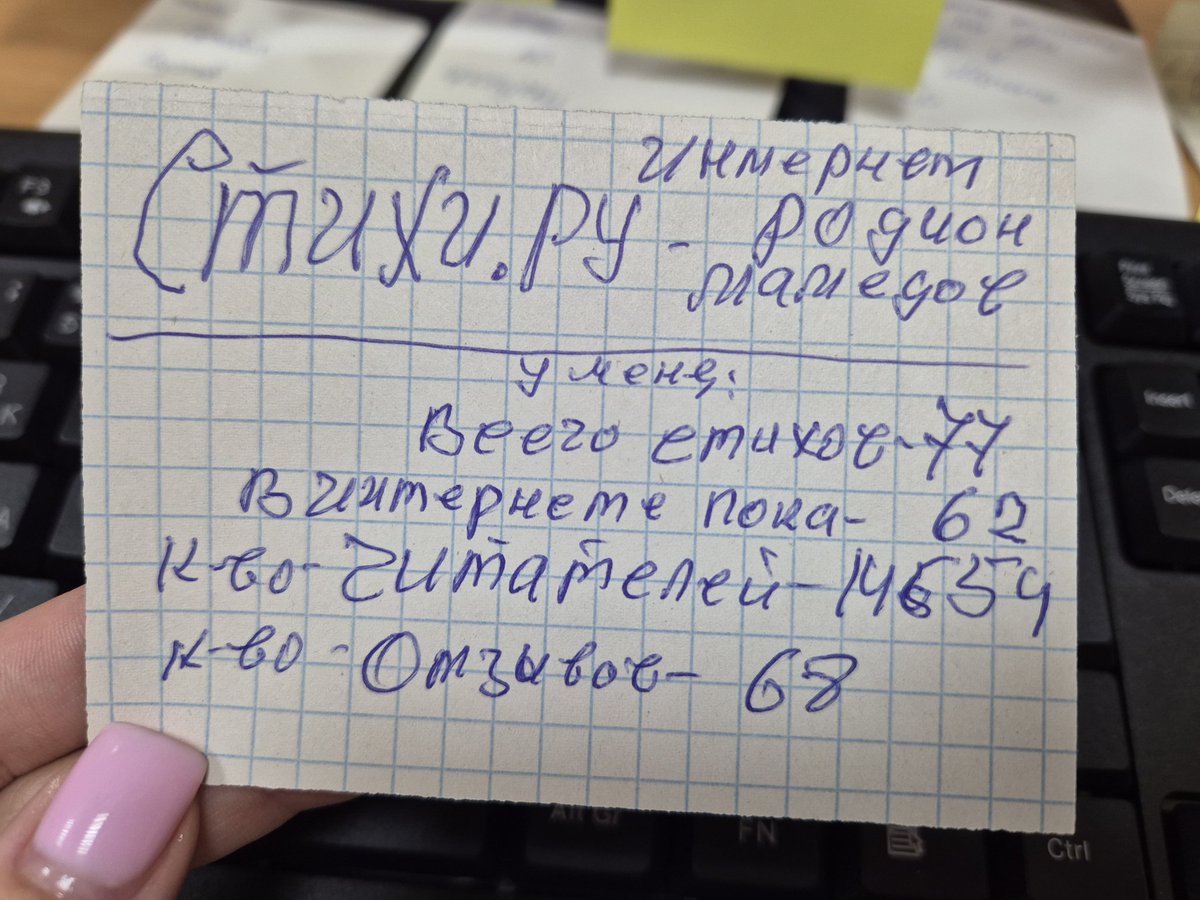 Интернет
Стихи.ру - Родион
Мамедов
У меня:
Всего стихов - 77
В интернете пока - 62
К-во - Читателей - 14654
К-во - Отзывов - 68
F3
Insert
Alt Gr
FN
Ctrl